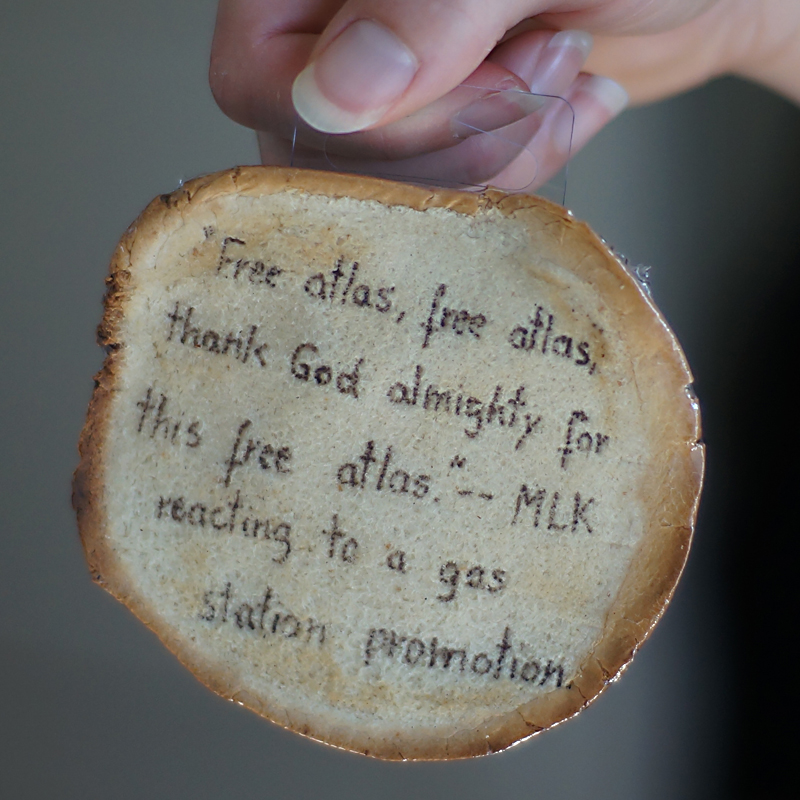 "Free atlas, free atlas,
thank God almighty for
this free atlas."-- MLK
reacting to a gas
station promotion.